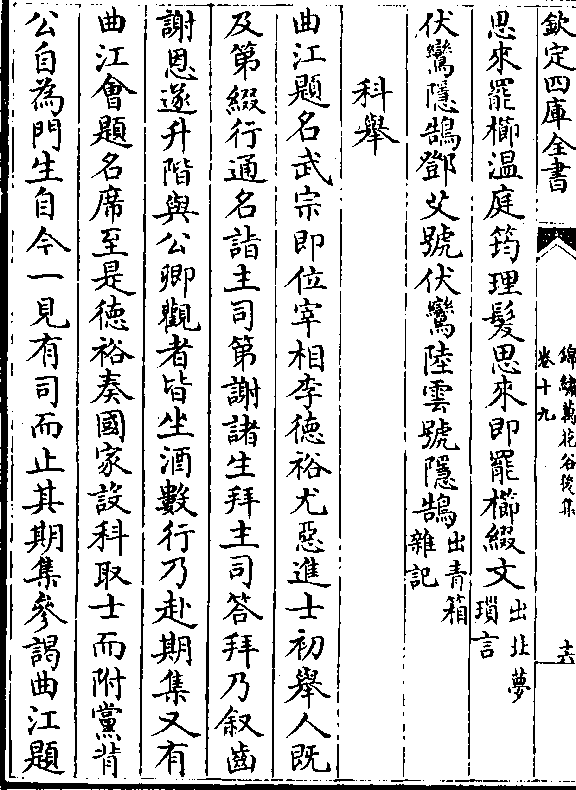 欽定四庫全書
錦繡萬花谷後集
卷十九
十六
思來罷櫛溫庭筠理髮思來即罷櫛綴文出北夢
瑣言
伏鸞隱鵠鄧艾號伏鸞陸雲號隱鵠出青箱
雜記
科舉
曲江題名武宗即位宰相李德裕尤惡進士初舉人既
及第綴行通名詣主司第謝諸生拜主司答拜乃叙齒
謝恩遂升階與公卿觀者皆坐酒數行乃赴期集又有
曲江會題名席至是德裕奏國家設科取士而附黨背
公自為門生自今一見有司而止其期集參謁曲江題